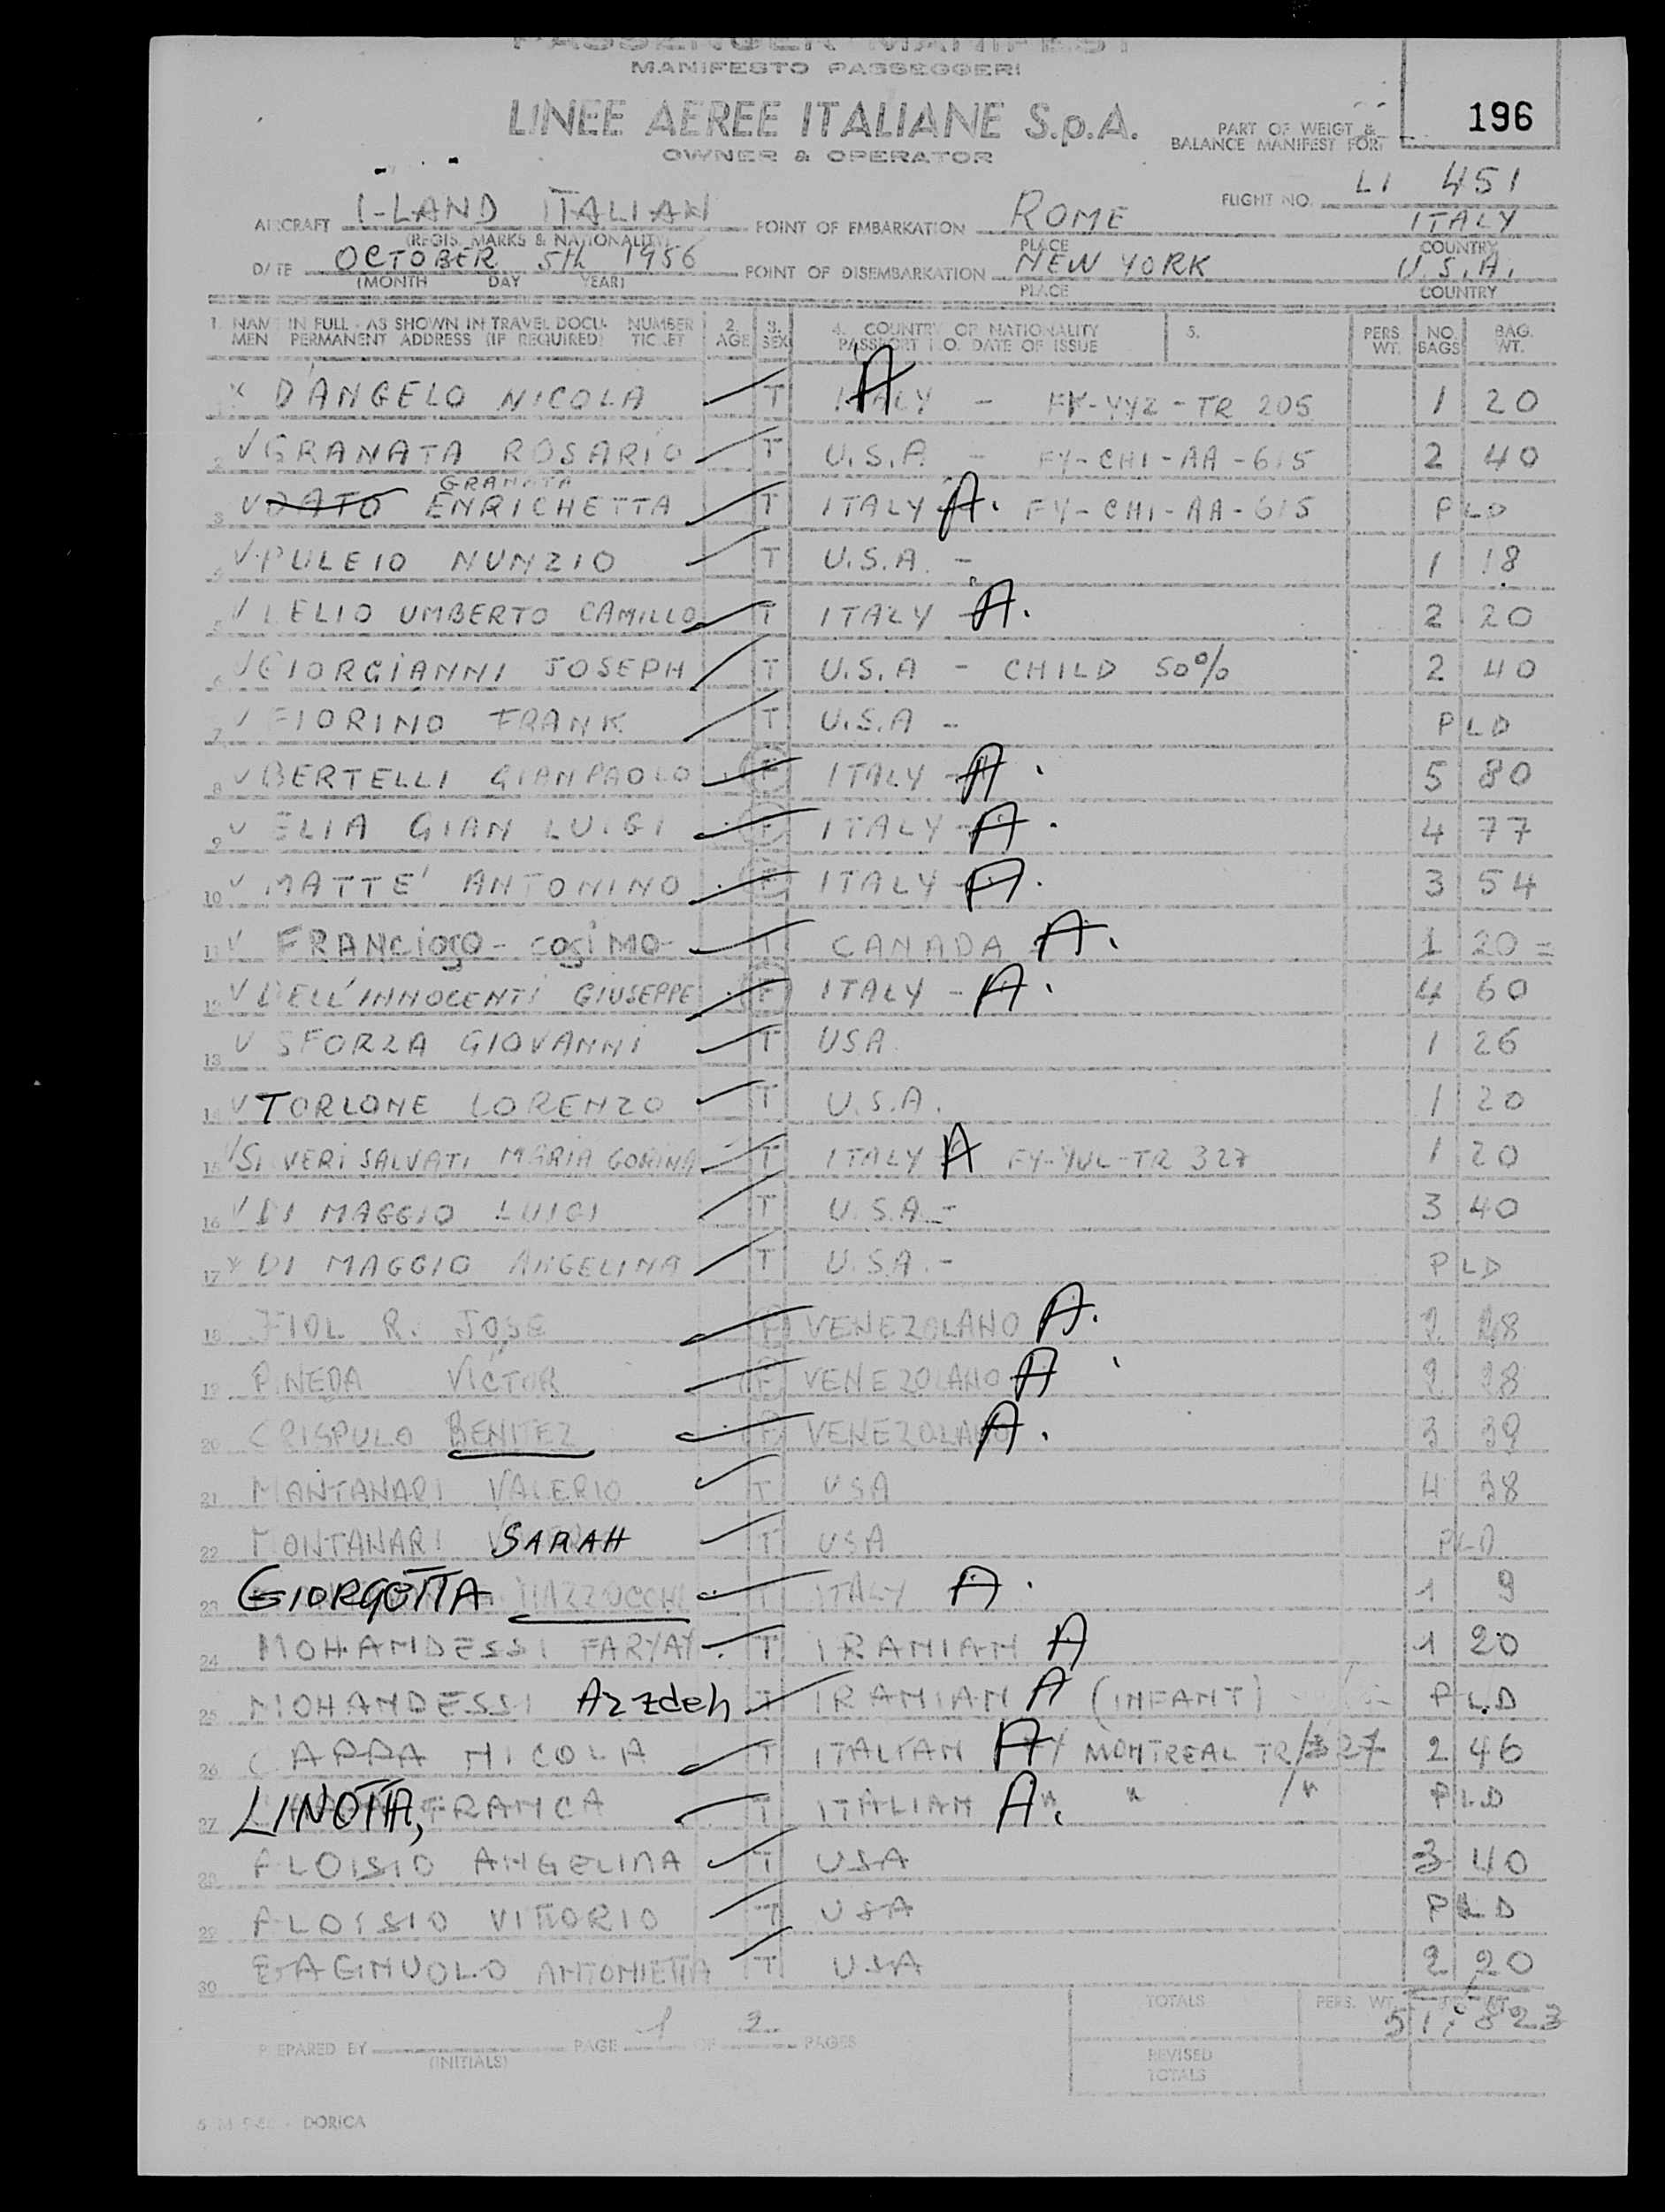 PASSENGER MANIFEST
MANIFESTO PASSEGGERI
LINEE AEREE ITALIANE S.p.A.
OWNER & OPERATOR
PART OF WEIGT &
BALANCE MANIFEST FOR:
196
FLIGHT NO. LI 451
AIRCRAFT I-LAND ITALIAN POINT OF EMBARKATION ROME ITALY
(REGIS. MARKS & NATIONALITY) PLACE COUNTRY
DATE OCTOBER 5th 1956 POINT OF DISEMBARKATION NEW YORK U.S.A.
(MONTH DAY YEAR) PLACE COUNTRY
1. NAM IN FULL - AS SHOWN IN TRAVEL DOCU- NUMBER 2. 3. 4. COUNTRY OF NATIONALITY 5. PERS NO. BAG.
MEN PERMANENT ADDRESS (IF REQUIRED) TICKET AGE SEX PASSPORT NO. DATE OF ISSUE WT. BAGS WT.
D'ANGELO NICOLA T ITALY A - FY-YYZ-TR 205 1 20
2 V GRANATA ROSARIO T U.S.A - FY-CHI-AA-615 2 40
GRANATA
3 V DATO ENRICHETTA T ITALY A. FY-CHI-AA-615 PLD
V PULEIO NUNZIO T U.S.A. - 1 18
5 V LELIO UMBERTO CAMILLO T ITALY A. 2 20
6 V GIORGIANNI JOSEPH T U.S.A - CHILD 50% 2 40
7 V FIORINO FRANK T U.S.A - PLD
8 V BERTELLI GIANPAOLO F ITALY - A. 5 80
9 V ELIA GIAN LUIGI F ITALY - A. 4 77
10 V MATTE' ANTONINO F ITALY - A. 3 54
11 V FRANCIOSO - COSIMO - T CANADA A. 1 20 =
12 V DELL'INNOCENTI GIUSEPPE F ITALY - A. 4 60
13 V SFORZA GIOVANNI T USA. 1 26
14 V TORLONE LORENZO T U.S.A. 1 20
15 V SILVERI SALVATI MARIA GORINA T ITALY A FY-YUL-TR 327 1 20
16 V DI MAGGIO LUIGI T U.S.A. - 3 40
17 DI MAGGIO ANGELINA T U.S.A. - PLD
18 FIOL R. JOSE F VENEZOLANO A. 2 28
19 PINEDA VICTOR F VENEZOLANO A 2 28
20 CRISPULO BENITEZ F VENEZOLANO A. 3 39
21 MANTANARI VALERIO T USA 4 38
22 MONTANARI SARAH T USA PLD
23 GIORGOTTA MAZZUCCHI T ITALY A. 1 9
24 MOHANDESSI FARYAY T IRANIAN A 1 20
25 MOHANDESSI Azzdeh T IRANIAN A (INFANT) PLD
26 CAPPA NICOLA T ITALIAN A MONTREAL TR/327 2 46
27 LINOTTA, FRANCA T ITALIAN A. " " /" PLD
28 ALOISIO ANGELINA T USA 3 40
29 ALOISIO VITTORIO T USA PLD
30 ANTONIETTA T USA 2 20
TOTALS PERS. WT. 51 823
PREPARED BY PAGE 1 OF 2 PAGES
(INITIALS)
REVISED
TOTALS
DORICA